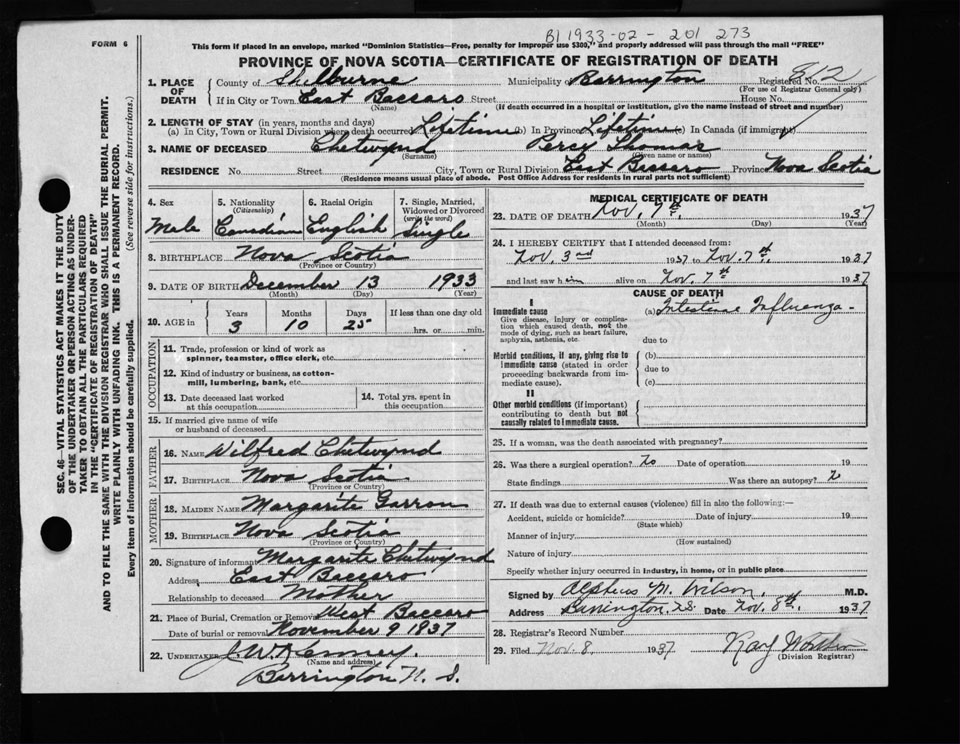 B1 1933-02-201 273
FORM 6
This form if placed in an envelope, marked "Dominion Statistics—Free, penalty for improper use $300," and properly addressed will pass through the mail "FREE"
PROVINCE OF NOVA SCOTIA—CERTIFICATE OF REGISTRATION OF DEATH
1. PLACE OF DEATH County of Shelburne Municipality of Barrington Registered No. 812
(For use of Registrar General only)
If in City or Town East Baccaro Street House No.
(Name) (If death occurred in a hospital or institution, give the name instead of street and number)
2. LENGTH OF STAY (in years, months and days)
(a) In City, Town or Rural Division where death occurred Lifetime (b) In Province Lifetime (c) In Canada (if immigrant)
3. NAME OF DECEASED Chetwynd Percy Thomas
(Surname) (Given name or names)
RESIDENCE No. Street City, Town or Rural Division East Baccaro Province Nova Scotia
(Residence means usual place of abode. Post Office Address for residents in rural parts not sufficient)
4. Sex 5. Nationality (Citizenship) 6. Racial Origin 7. Single, Married, Widowed or Divorced (write the word)
Male Canadian English Single
8. BIRTHPLACE Nova Scotia
(Province or Country)
9. DATE OF BIRTH December 13 1933
(Month) (Day) (Year)
10. AGE in Years Months Days If less than one day old
3 10 25 hrs. or min.
OCCUPATION
11. Trade, profession or kind of work as spinner, teamster, office clerk, etc.
12. Kind of industry or business, as cotton-mill, lumbering, bank, etc.
13. Date deceased last worked at this occupation
14. Total yrs. spent in this occupation
15. If married give name of wife or husband of deceased
FATHER
16. NAME Wilfred Chetwynd
17. BIRTHPLACE Nova Scotia
(Province or Country)
MOTHER
18. MAIDEN NAME Margarite Garron
19. BIRTHPLACE Nova Scotia
(Province or Country)
20. Signature of informant Margarite Chetwynd
Address East Baccaro
Relationship to deceased Mother
21. Place of Burial, Cremation or Removal West Baccaro
Date of burial or removal November 9 1837
22. UNDERTAKER J. W. Kenney
(Name and address)
Barrington N. S.
MEDICAL CERTIFICATE OF DEATH
23. DATE OF DEATH Nov. 7th. 1937
(Month) (Day) (Year)
24. I HEREBY CERTIFY that I attended deceased from:
Nov. 3rd 1937 to Nov. 7th. 1937
and last saw him alive on Nov. 7th 1937
CAUSE OF DEATH
I
Immediate cause (a) Intestinal Influenza
Give disease, injury or complication which caused death, not the mode of dying, such as heart failure, asphyxia, asthenia, etc.
due to
Morbid conditions, if any, giving rise to immediate cause (stated in order proceeding backwards from immediate cause).
(b)
due to
(c)
II
Other morbid conditions (if important) contributing to death but not causally related to immediate cause.
25. If a woman, was the death associated with pregnancy?
26. Was there a surgical operation? No Date of operation 19
State findings Was there an autopsy?
27. If death was due to external causes (violence) fill in also the following:—
Accident, suicide or homicide? Date of injury 19
(State which)
Manner of injury
(How sustained)
Nature of injury
Specify whether injury occurred in industry, in home, or in public place
Signed by Alpheus M. Wilson. M.D.
Address Barrington, N.S. Date Nov. 8th. 1937
28. Registrar's Record Number
29. Filed Nov. 8. 1937 Ray
(Division Registrar)
SEC. 46—VITAL STATISTICS ACT MAKES IT THE DUTY
OF THE UNDERTAKER OR PERSON ACTING AS UNDER-
TAKER TO OBTAIN ALL THE PARTICULARS REQUIRED
IN THE "CERTIFICATE OF REGISTRATION OF DEATH"
AND TO FILE THE SAME WITH THE DIVISION REGISTRAR WHO SHALL ISSUE THE BURIAL PERMIT.
WRITE PLAINLY WITH UNFADING INK. THIS IS A PERMANENT RECORD.
Every item of information should be carefully supplied. (See reverse side for instructions.)